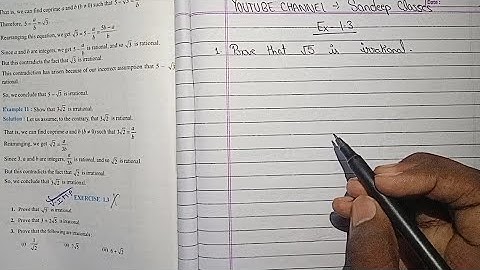 That is, we can find coprime a and b (b ≠ 0) such that 5 – √3 = a/b.
Therefore, 5 – a/b = √3.
Rearranging this equation, we get √3 = 5 – a/b = (5b – a)/b.
Since a and b are integers, we get 5 – a/b is rational, and so √3 is rational.
But this contradicts the fact that √3 is irrational.
This contradiction has arisen because of our incorrect assumption that 5 – √3
rational.
So, we conclude that 5 – √3 is irrational.
Example 11 : Show that 3√2 is irrational.
Solution : Let us assume, to the contrary, that 3√2 is rational.
That is, we can find coprime a and b (b ≠ 0) such that 3√2 = a/b.
Rearranging, we get √2 = a/3b.
Since 3, a and b are integers, a/3b is rational, and so √2 is rational.
But this contradicts the fact that √2 is irrational.
So, we conclude that 3√2 is irrational.
EXERCISE 1.3
1. Prove that √5 is irrational.
2. Prove that 3 + 2√5 is irrational.
3. Prove that the following are irrationals :
(i) 1/√2 (ii) 7√5 (iii) 6 + √2
YOUTUBE CHANNEL → Sandeep Classes
Date :
Ex – 1.3
1. Prove that √5 is irrational.